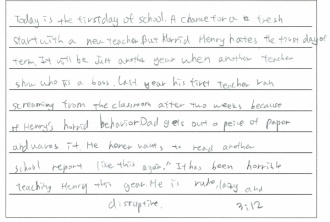 Today is the first day of school. A chance for a fresh
start with a new teacher But Horrid Henry hates the first day of
term. It will be Just another year when another teacher
show who is a boss. Last year his first teacher ran
screaming from the classroom after two weeks because
of Henry's horrid behavior Dad gets out a peice of paper
and waves it He never wants to read another
school report like this again." It has been horrible
teaching Henry this year. He is rude, lazy and
disruptive. 3:12